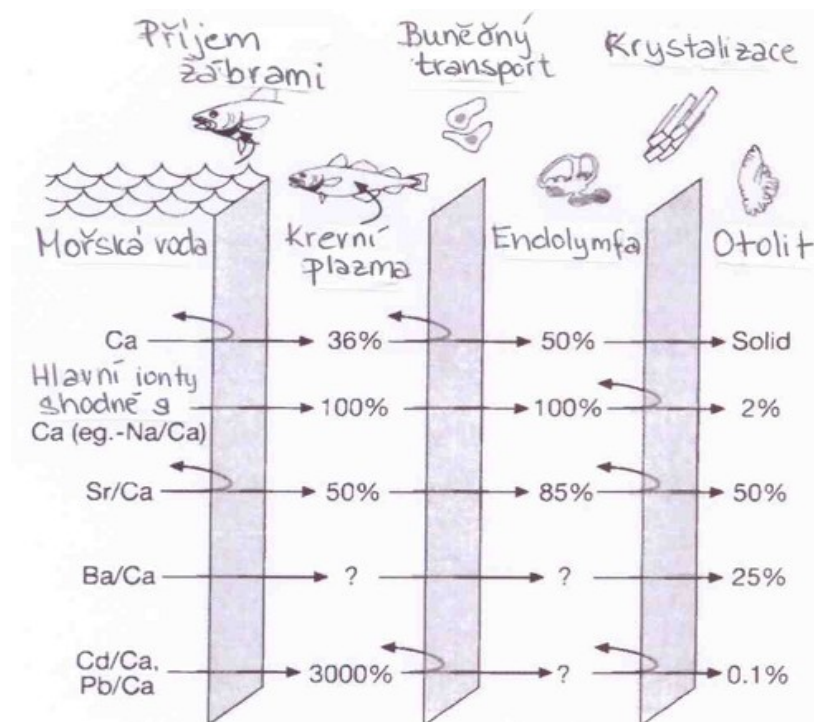 Příjem
žábrami
Buněčný
transport
Krystalizace
Mořská voda
Krevní
plazma
Endolymfa
Otolit
Ca
36%
50%
Solid
Hlavní ionty
shodné s
Ca (eg.-Na/Ca)
100%
100%
2%
Sr/Ca
50%
85%
50%
Ba/Ca
?
?
25%
Cd/Ca,
Pb/Ca
3000%
?
0.1%